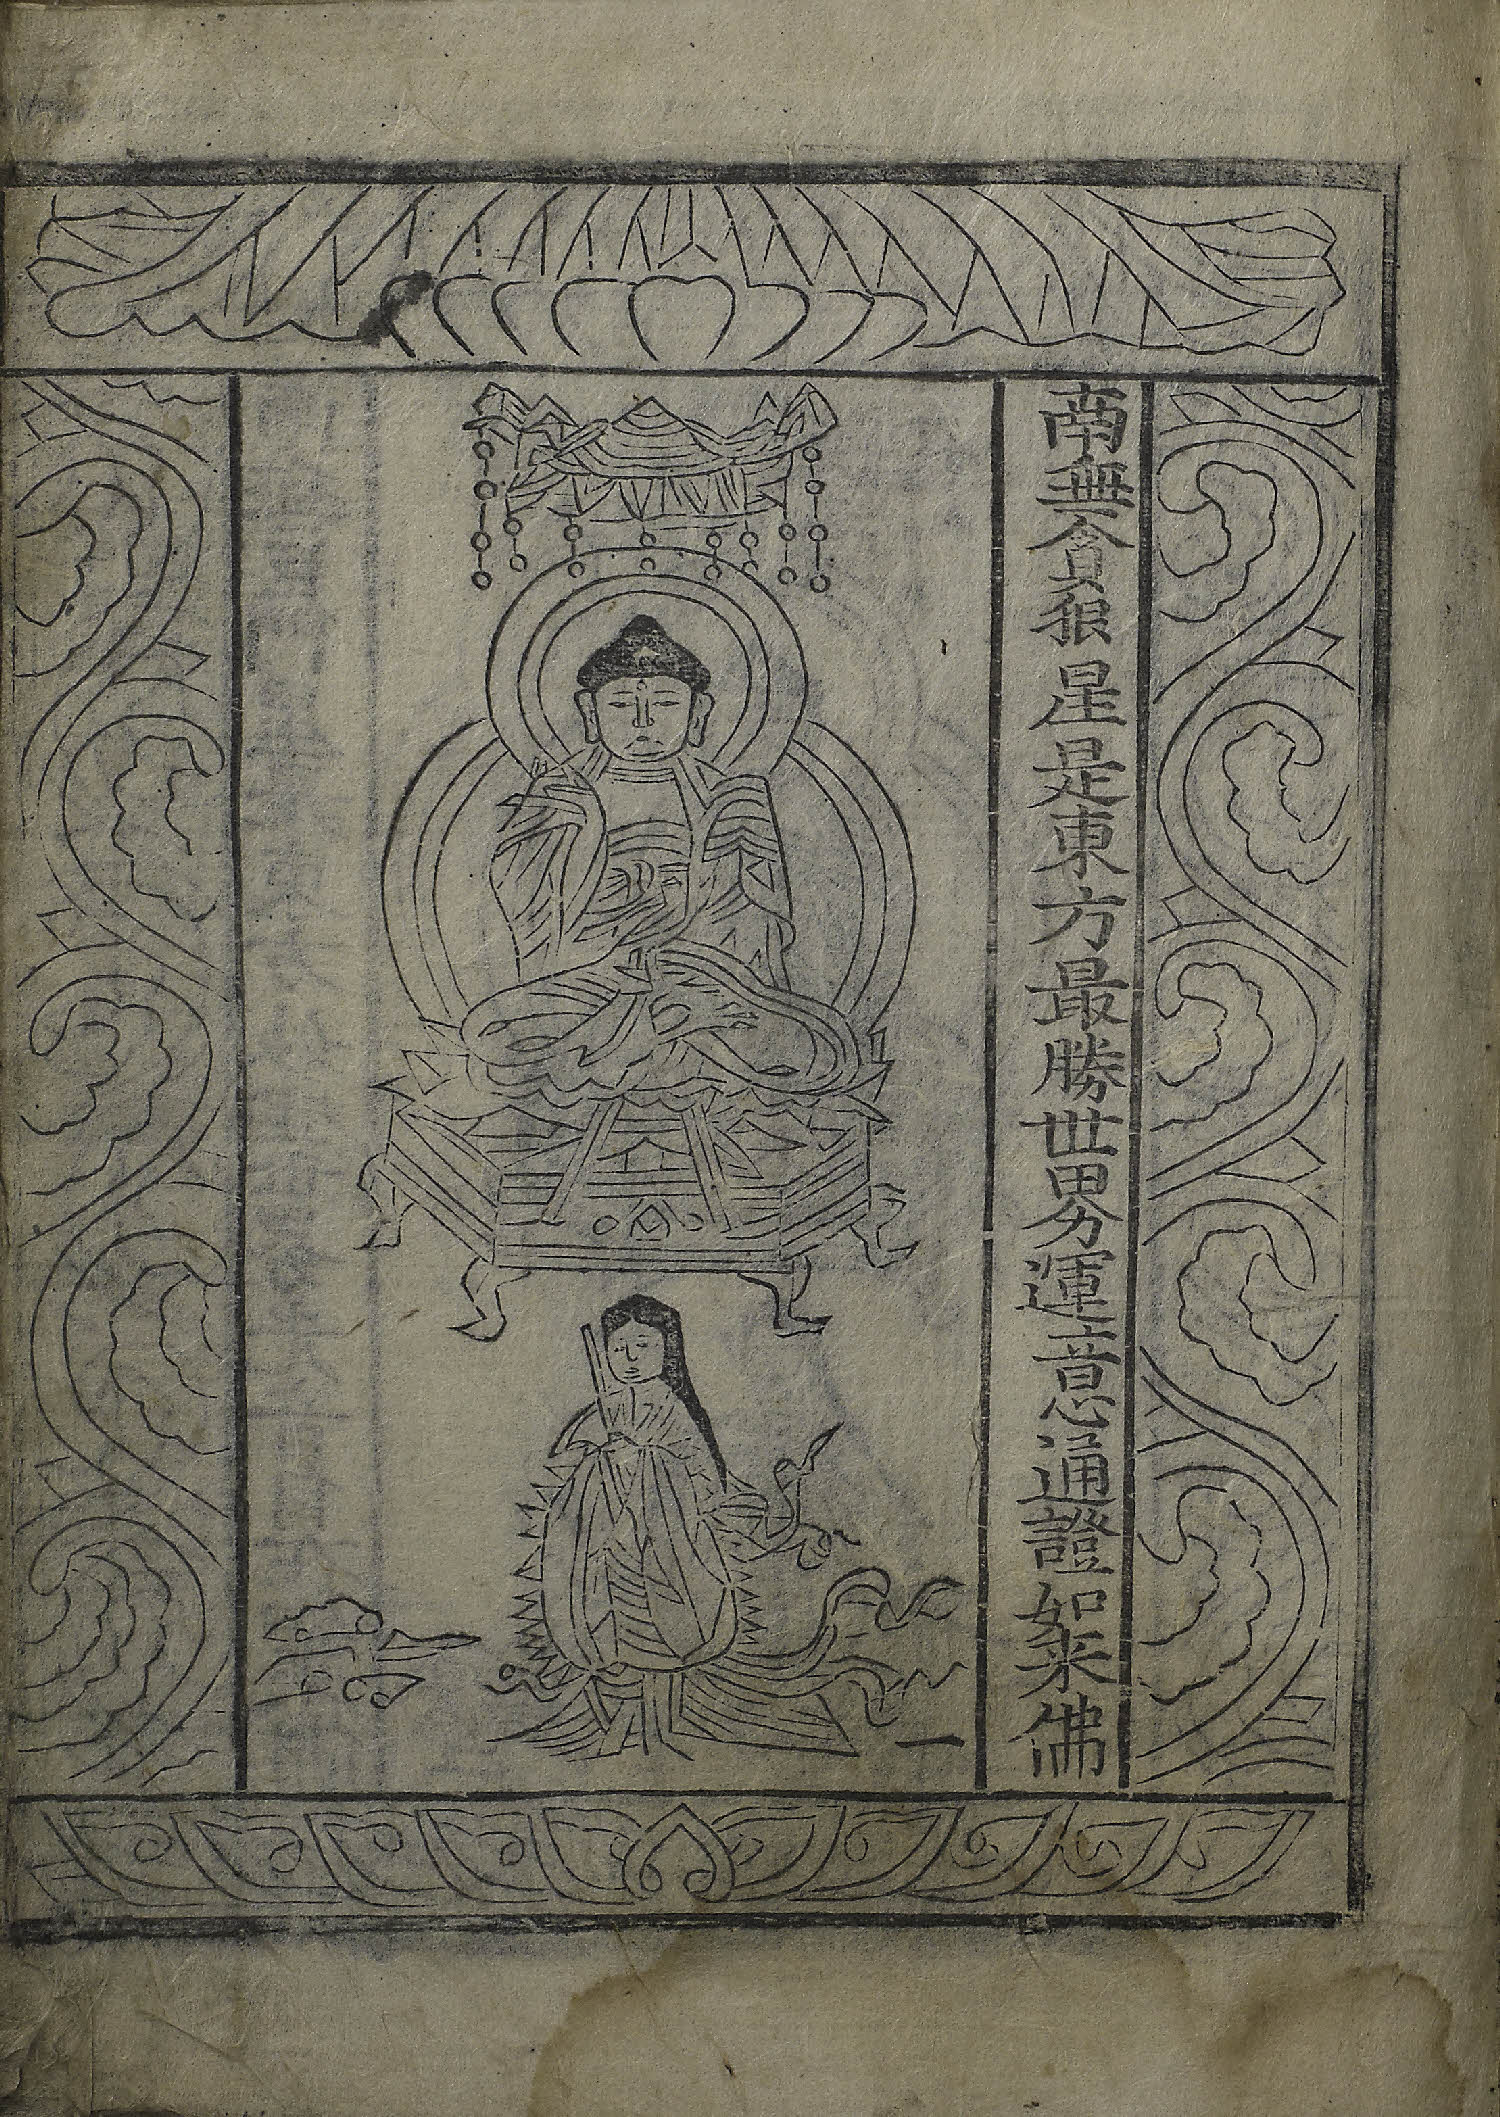 南無貪狼星是東方最勝世界運意通證如来佛
一